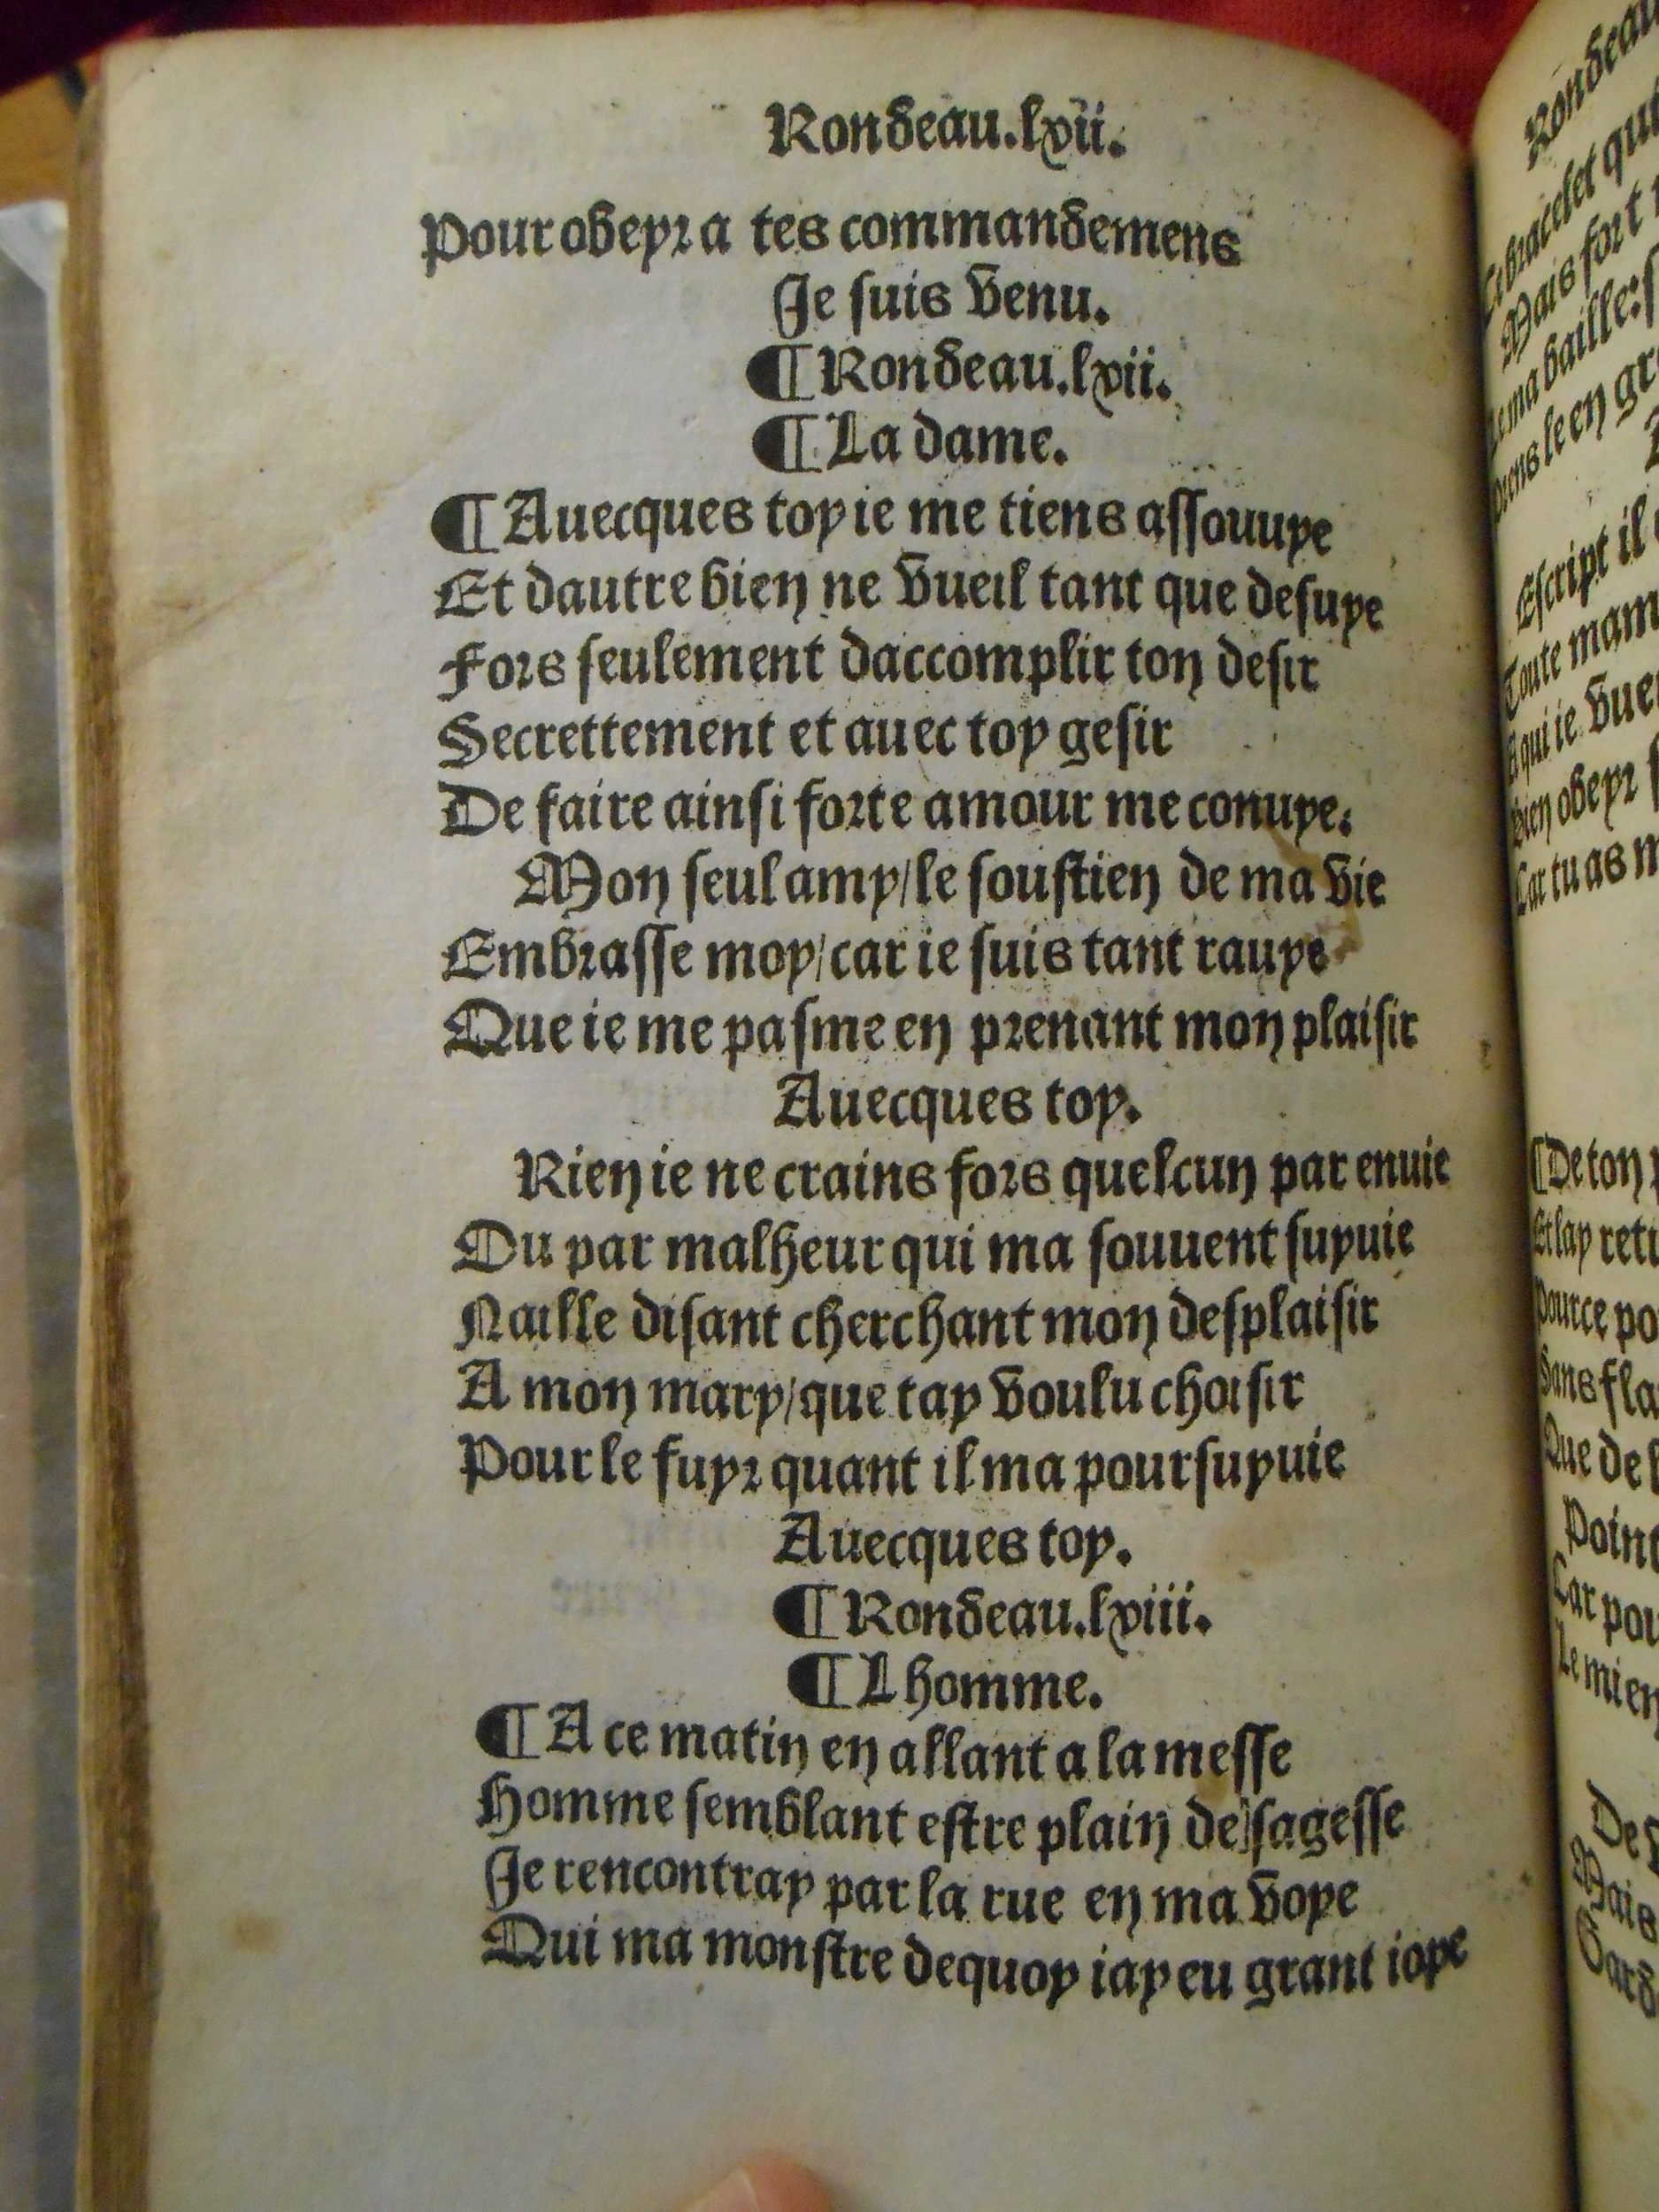 Rondeau.lxii.
Pour obeyr a tes commandemens
Je suis venu.
¶Rondeau.lxii.
¶La dame.
¶Auecques toy ie me tiens assouuye
Et dautre bien ne vueil tant que desuye
Fors seulement daccomplir ton desir
Secrettement et auec toy gesir
De faire ainsi forte amour me conuye.
Mon seul amy/le soustien de ma vie
Embrasse moy/car ie suis tant rauye
Que ie me pasme en prenant mon plaisir
Auecques toy.
Rien ie ne crains fors quelcun par enuie
Ou par malheur qui ma souuent suyuie
Naille disant cherchant mon desplaisir
A mon mary/que tay voulu choisir
Pour le fuyr quant il ma poursuyuie
Auecques toy.
¶Rondeau.lxiii.
¶Lhomme.
¶A ce matin en allant a la messe
Homme semblant estre plain de sagesse
Je rencontray par la rue en ma voye
Qui ma monstre dequoy iay eu grant ioye
Rondeau
Mais fort
ma baille:
prens le en
Escript il
Toute mam
A qui ie vue
Bien obeyr
Car tu as m
¶De ton
Et lay
Pource po
Sans fla
Que de
Point
Car pou
Le mien
De
Mais
Gard